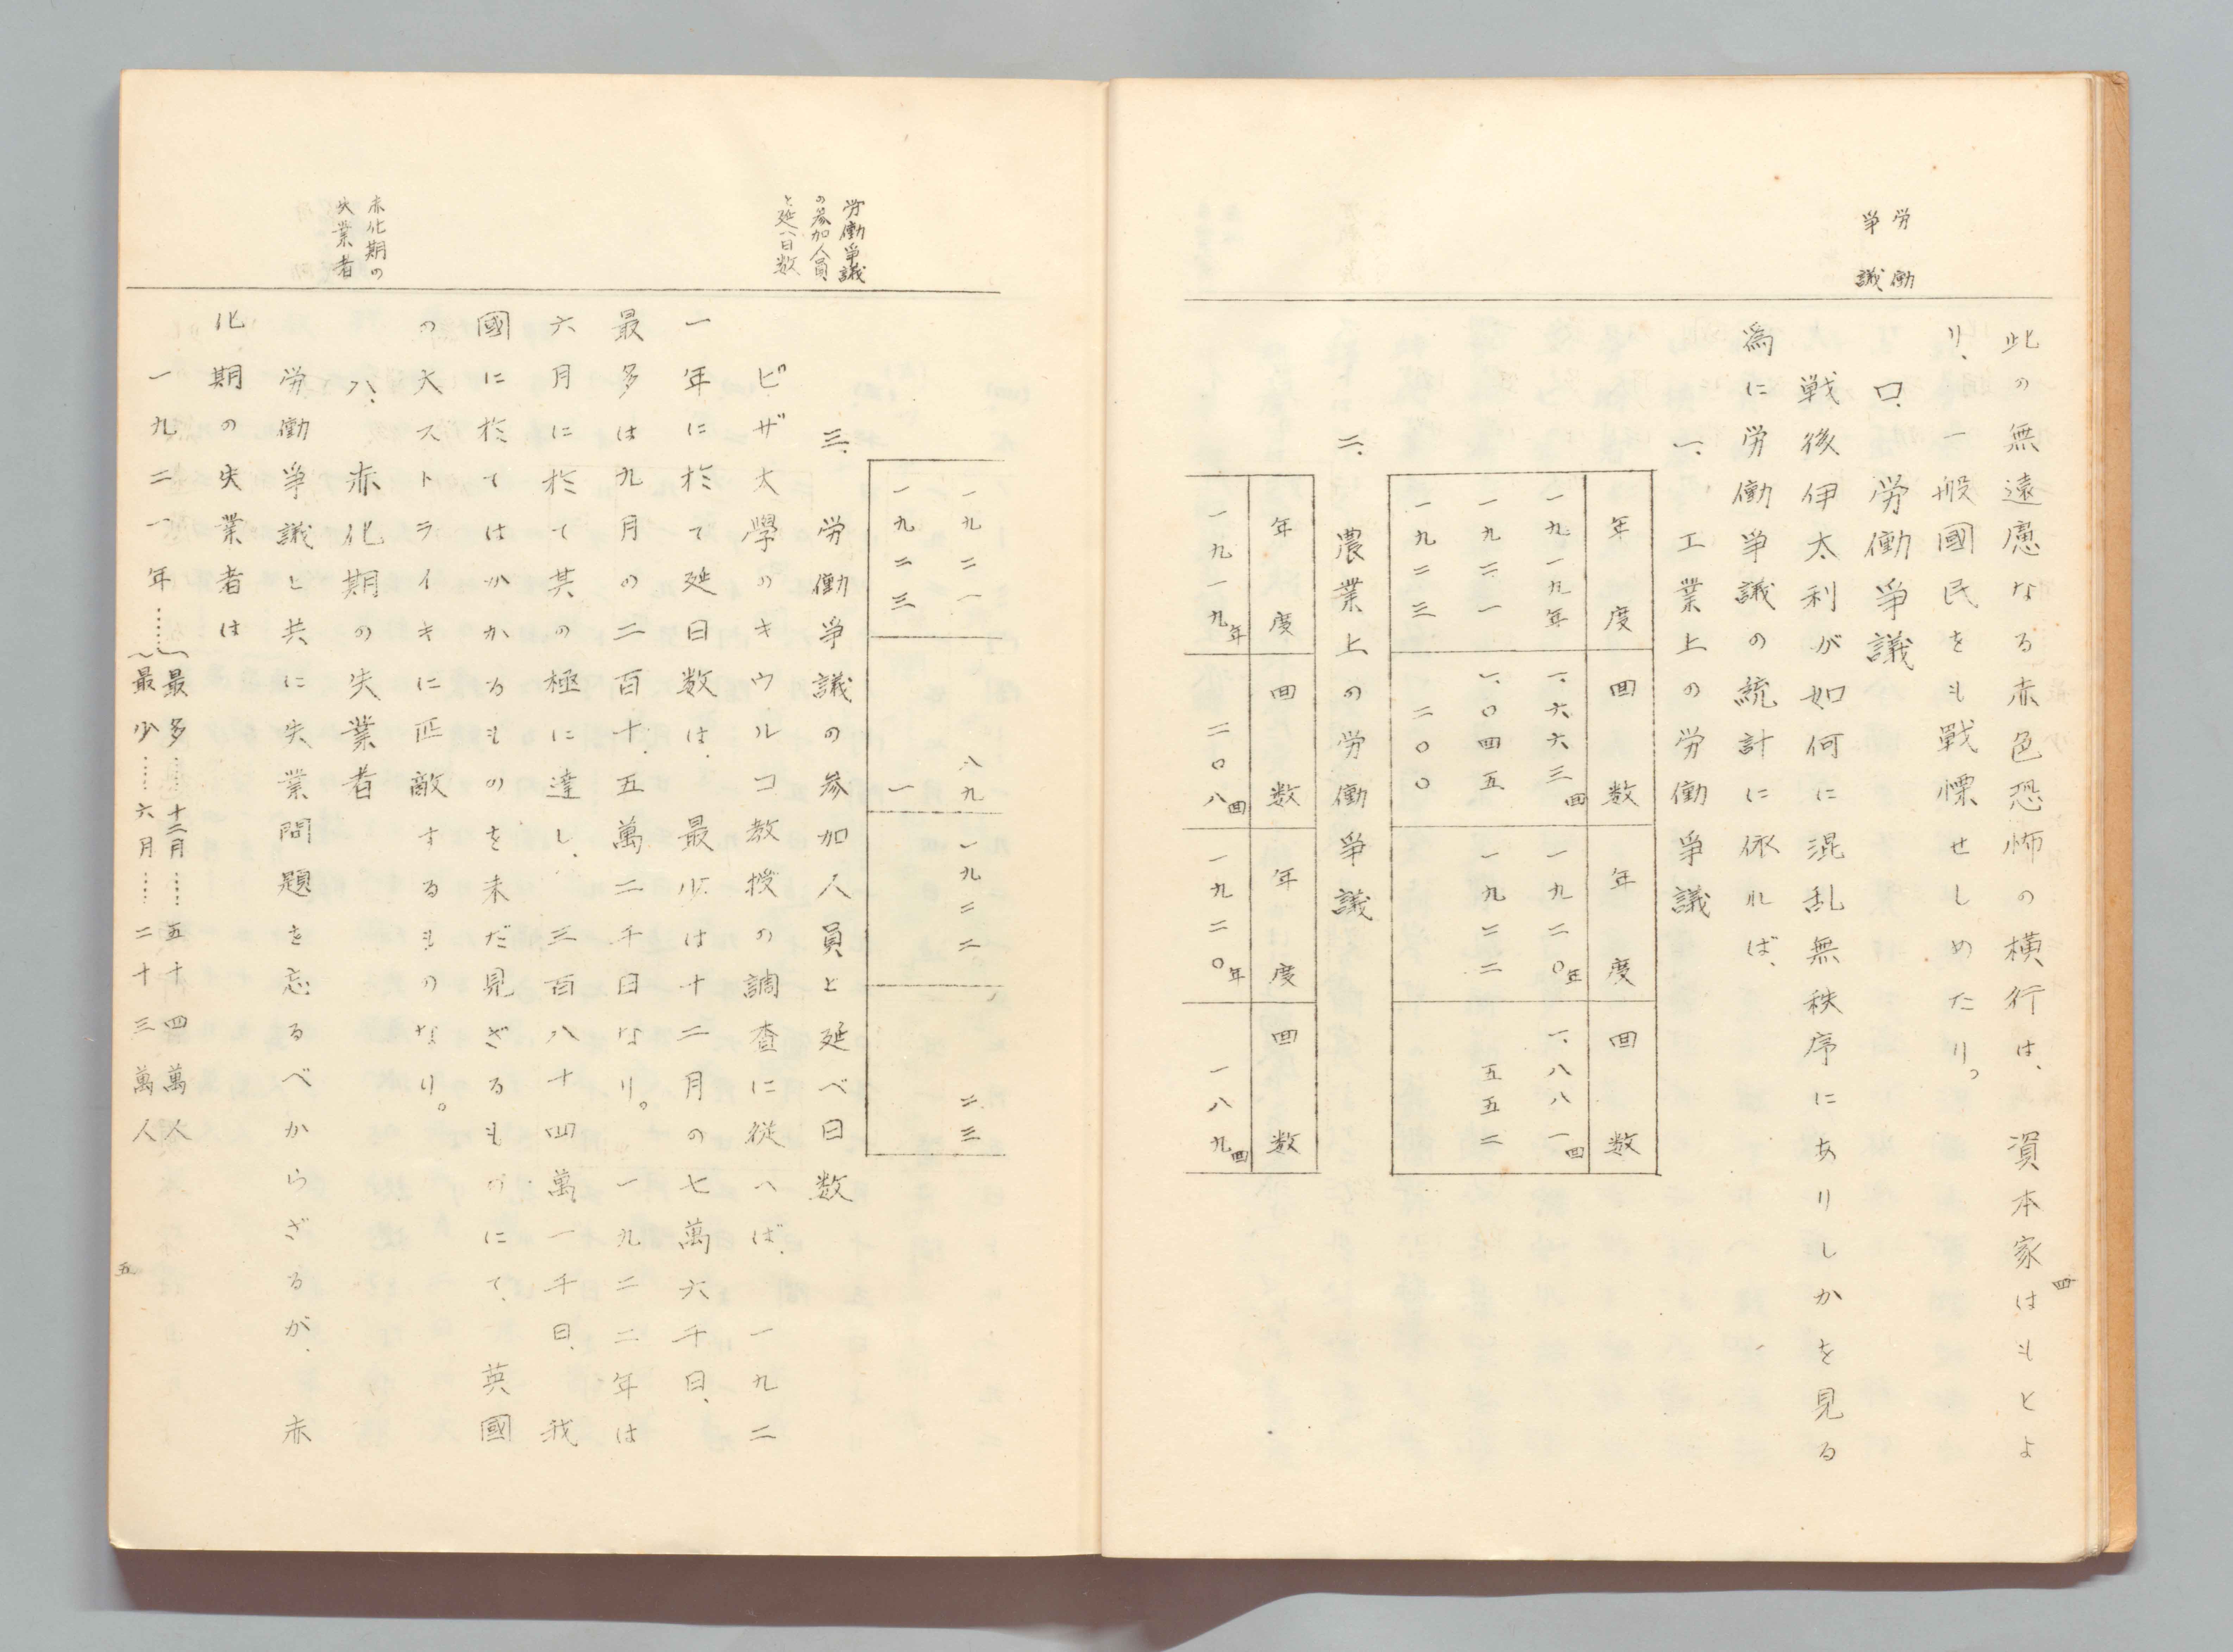 労働
争議
此の無遠慮なる赤色恐怖の横行は、資本家はもとよ
り、一般國民をも戦慄せしめたり。
ロ、労働争議
戦後伊太利が如何に混乱無秩序にありしかを見る
爲に労働争議の統計に依れば、
一、工業上の労働争議
年度 回数 年度 回数
一九一九年 一、六六三回 一九二〇年 一、八八一回
一九二一 一、〇四五 一九二二 五五二
一九二三 二〇〇
二、農業上の労働争議
年度 回数 年度 回数
一九一九年 二〇八回 一九二〇年 一八九回
四
労働争議
の参加人員
と延べ日数
赤化期の
失業者
一九二一 八九 一九二二 二三
一九二三 一
三、労働争議の参加人員と延べ日数
ピザ大學のキウルコ教授の調査に從へば、一九二
一年に於て延日数は、最少は十二月の七萬六千日、
最多は九月の二百十五萬二千日なり。一九二二年は
六月に於て其の極に達し、三百八十四萬一千日、我
國に於てはかかるものを未だ見ざるものにて、英國
の大ストライキに匹敵するものなり。
ハ、赤化期の失業者
労働争議と共に失業問題を忘るべからざるが、赤
化期の失業者は
一九二一年……
最多……十二月……五十四萬人
最少……六月……二十三萬人
五